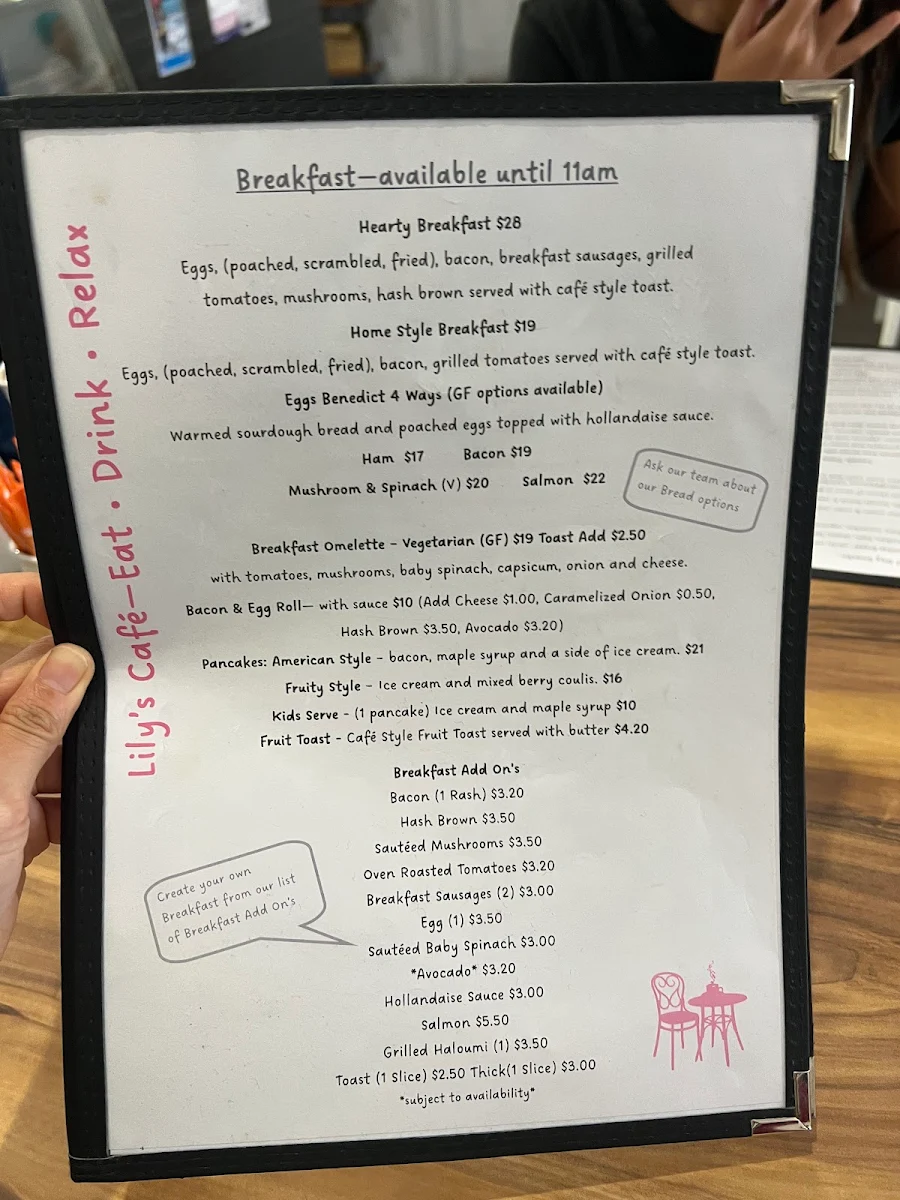 Breakfast—available until 11am
Hearty Breakfast $28
Eggs, (poached, scrambled, fried), bacon, breakfast sausages, grilled
tomatoes, mushrooms, hash brown served with café style toast.
Home Style Breakfast $19
Eggs, (poached, scrambled, fried), bacon, grilled tomatoes served with café style toast.
Eggs Benedict 4 Ways (GF options available)
Warmed sourdough bread and poached eggs topped with hollandaise sauce.
Ham $17 Bacon $19
Mushroom & Spinach (V) $20 Salmon $22
Ask our team about
our Bread options
Breakfast Omelette - Vegetarian (GF) $19 Toast Add $2.50
with tomatoes, mushrooms, baby spinach, capsicum, onion and cheese.
Bacon & Egg Roll— with sauce $10 (Add Cheese $1.00, Caramelized Onion $0.50,
Hash Brown $3.50, Avocado $3.20)
Pancakes: American Style - bacon, maple syrup and a side of ice cream. $21
Fruity Style - Ice cream and mixed berry coulis. $16
Kids Serve - (1 pancake) Ice cream and maple syrup $10
Fruit Toast - Café Style Fruit Toast served with butter $4.20
Breakfast Add On's
Bacon (1 Rash) $3.20
Hash Brown $3.50
Sautéed Mushrooms $3.50
Oven Roasted Tomatoes $3.20
Breakfast Sausages (2) $3.00
Egg (1) $3.50
Sautéed Baby Spinach $3.00
*Avocado* $3.20
Hollandaise Sauce $3.00
Salmon $5.50
Grilled Haloumi (1) $3.50
Toast (1 Slice) $2.50 Thick(1 Slice) $3.00
*subject to availability*
Create your own
Breakfast from our list
of Breakfast Add On's
Lily's Café—Eat • Drink • Relax